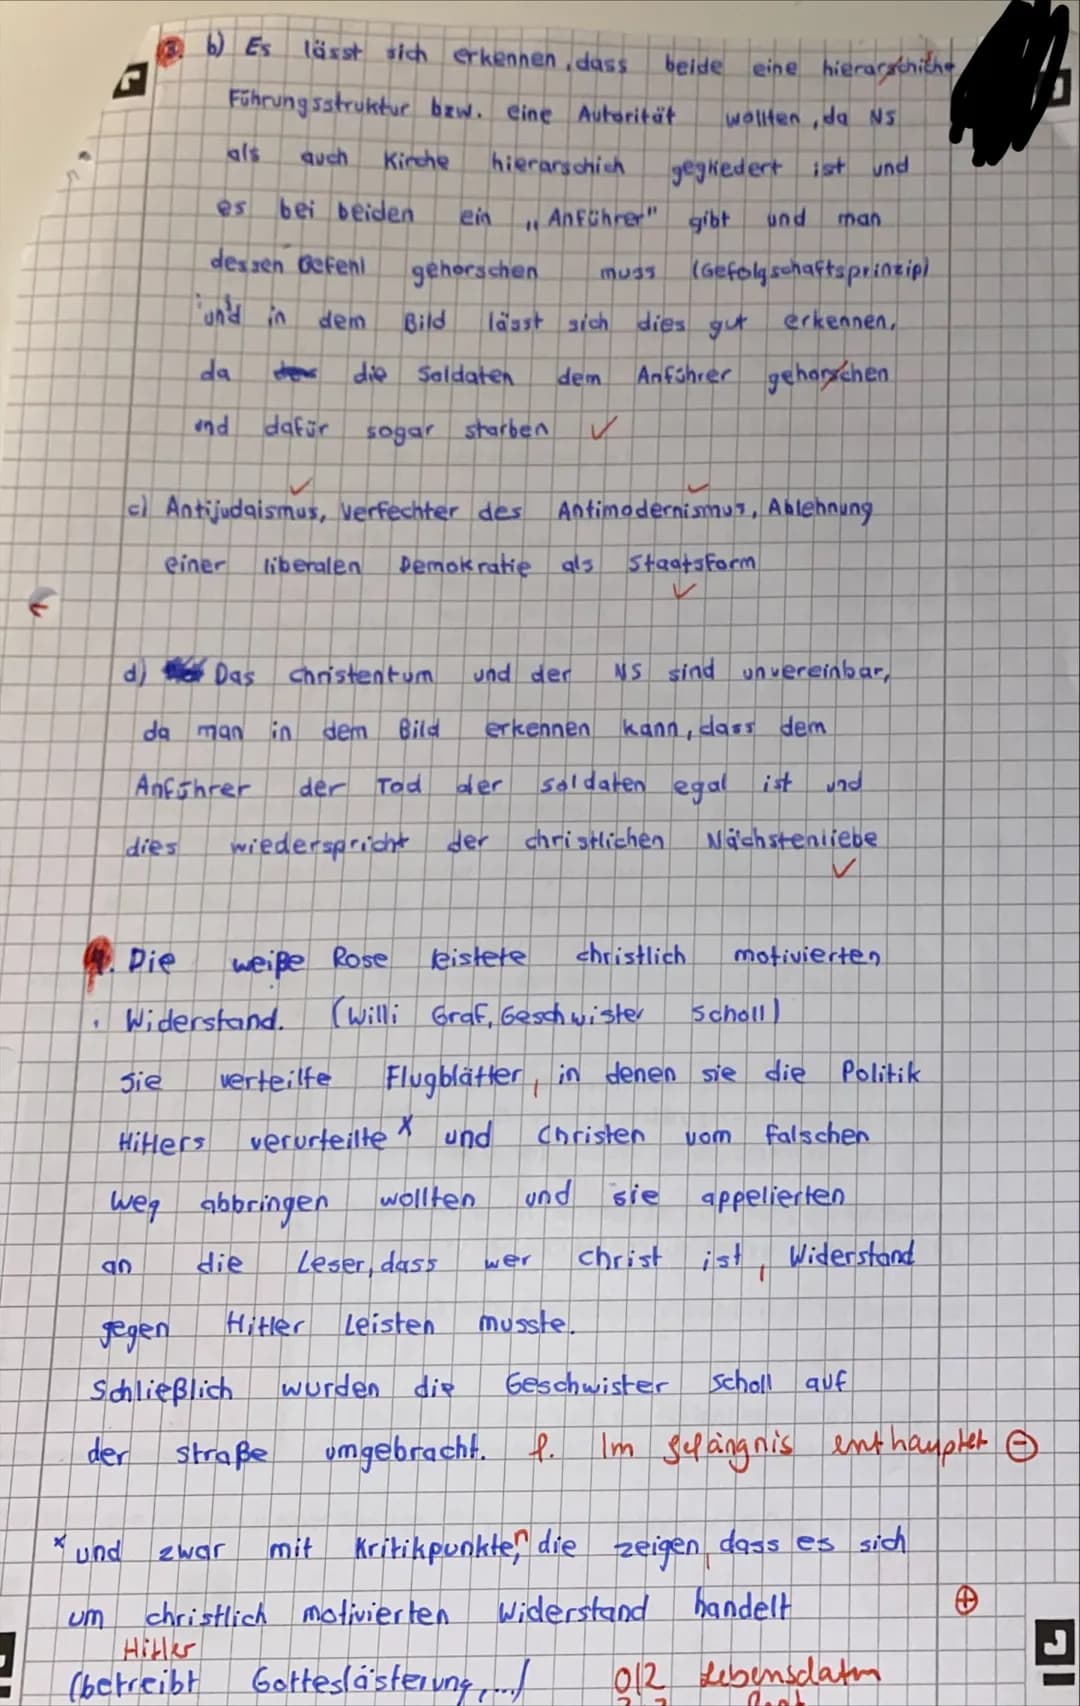 3. b) Es lässt sich erkennen, dass beide eine hierarschiche
Führungsstruktur bzw. eine Autorität wollten, da NS
als auch Kirche hierarschich gegliedert ist und
es bei beiden ein „Anführer" gibt und man
dessen Befehl gehorschen muss (Gefolgschaftsprinzip)
und in dem Bild lässt sich dies gut erkennen,
da die Soldaten dem Anführer gehorschen
und dafür sogar starben ✓
c) Antijudaismus, Verfechter des Antimodernismus, Ablehnung
einer liberalen Demokratie als Staatsform
d) Das Christentum und der NS sind unvereinbar,
da man in dem Bild erkennen kann, dass dem
Anführer der Tod der Soldaten egal ist und
dies wiederspricht der christlichen Nächstenliebe
4. Die weiße Rose leistete christlich motivierten
Widerstand. (Willi Graf, Geschwister Scholl)
Sie verteilte Flugblätter, in denen sie die Politik
Hitlers verurteilte x und Christen vom falschen
Weg abbringen wollten und sie appelierten
an die Leser, dass wer Christ ist, Widerstand
gegen Hitler leisten musste.
Schließlich wurden die Geschwister Scholl auf
der Straße umgebracht. f. Im Gefängnis enthauptet ⊖
x und zwar mit Kritikpunkten, die zeigen, dass es sich
um christlich motivierten Widerstand handelt ⊕
Hitler
(betreibt Gotteslästerung, ...) 0/2 Lebensdaten